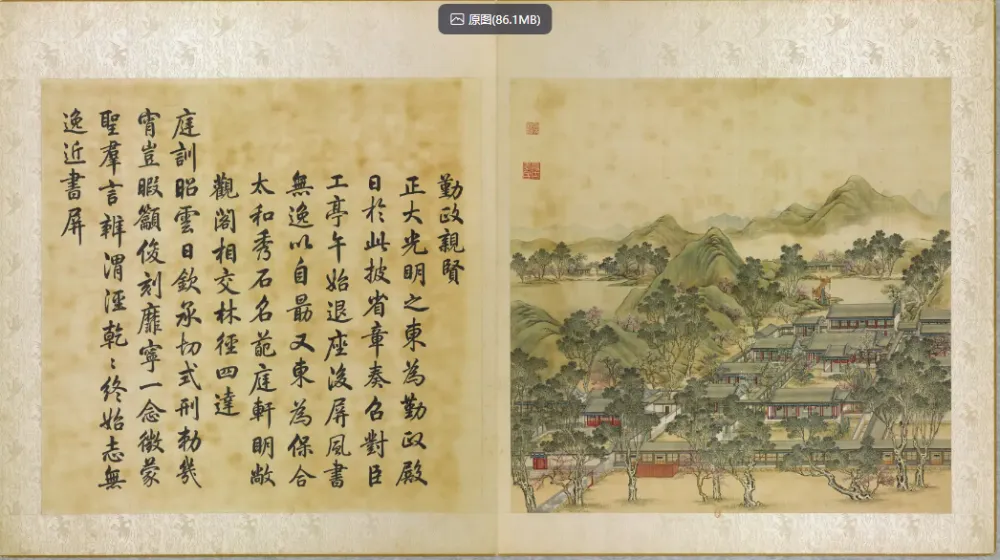 原图(86.1MB)
勤政親賢
正大光明之東為勤政殿
日於此披省章奏召對臣
工亭午始退座後屏風書
無逸以自勗又東為保合
太和秀石名葩庭軒明敞
觀閣相交林徑四達
庭訓昭雲日欽承切式刑勅幾
宵豈暇籲俊刻靡寧一念徵蒙
聖羣言辨渭涇乾〻終始志無
逸近書屏